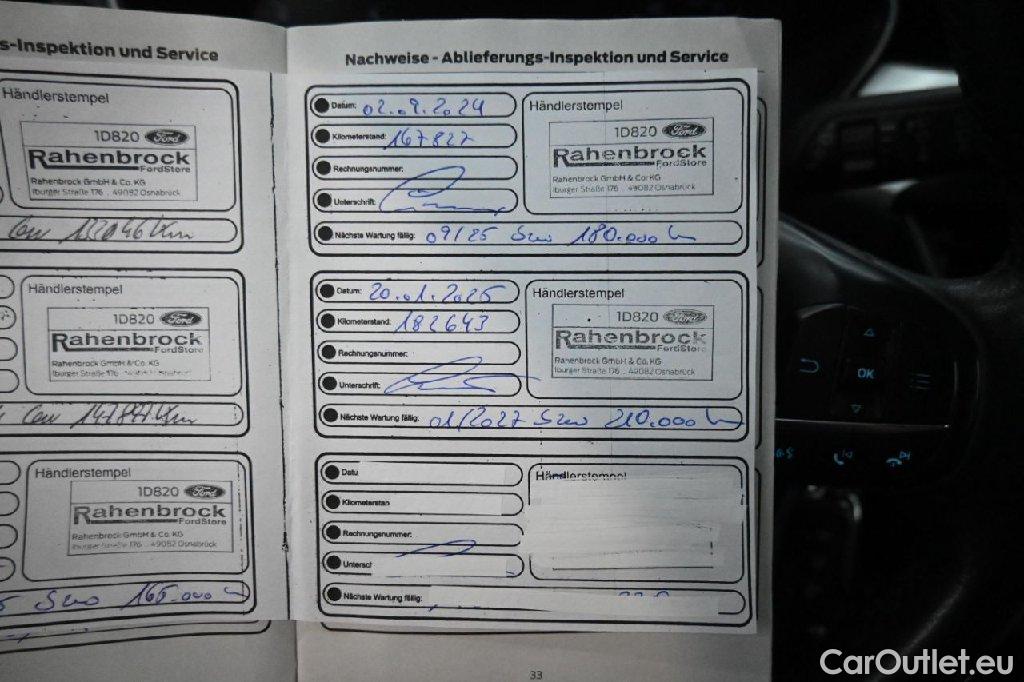 s-Inspektion und Service
Händlerstempel
1D820 Ford
Rahenbrock
FordStore
Rahenbrock GmbH & Co. KG
Iburger Straße 176 . 49082 Osnabrück
132046 Km
Händlerstempel
1D820 Ford
Rahenbrock
FordStore
Rahenbrock GmbH & Co. KG
Iburger Straße 176
147847 Km
Händlerstempel
1D820 Ford
Rahenbrock
FordStore
Rahenbrock GmbH & Co. KG
Iburger Straße 176 . 49082 Osnabrück
165.000
Nachweise - Ablieferungs-Inspektion und Service
Datum: 02.09.2024
Kilometerstand: 167827
Rechnungsnummer:
Unterschrift:
Nächste Wartung fällig: 09/25 180.000
Händlerstempel
1D820 Ford
Rahenbrock
FordStore
Rahenbrock GmbH & Co. KG
Iburger Straße 176 . 49082 Osnabrück
Datum: 20.01.2025
Kilometerstand: 182643
Rechnungsnummer:
Unterschrift:
Nächste Wartung fällig: 01/2027 210.000
Händlerstempel
1D820 Ford
Rahenbrock
FordStore
Rahenbrock GmbH & Co. KG
Iburger Straße 176 . 49082 Osnabrück
Datu
Kilometerstan
Rechnungsnummer:
Untersch
Nächste Wartung fällig:
Händlerstempel
33
OK
CarOutlet.eu